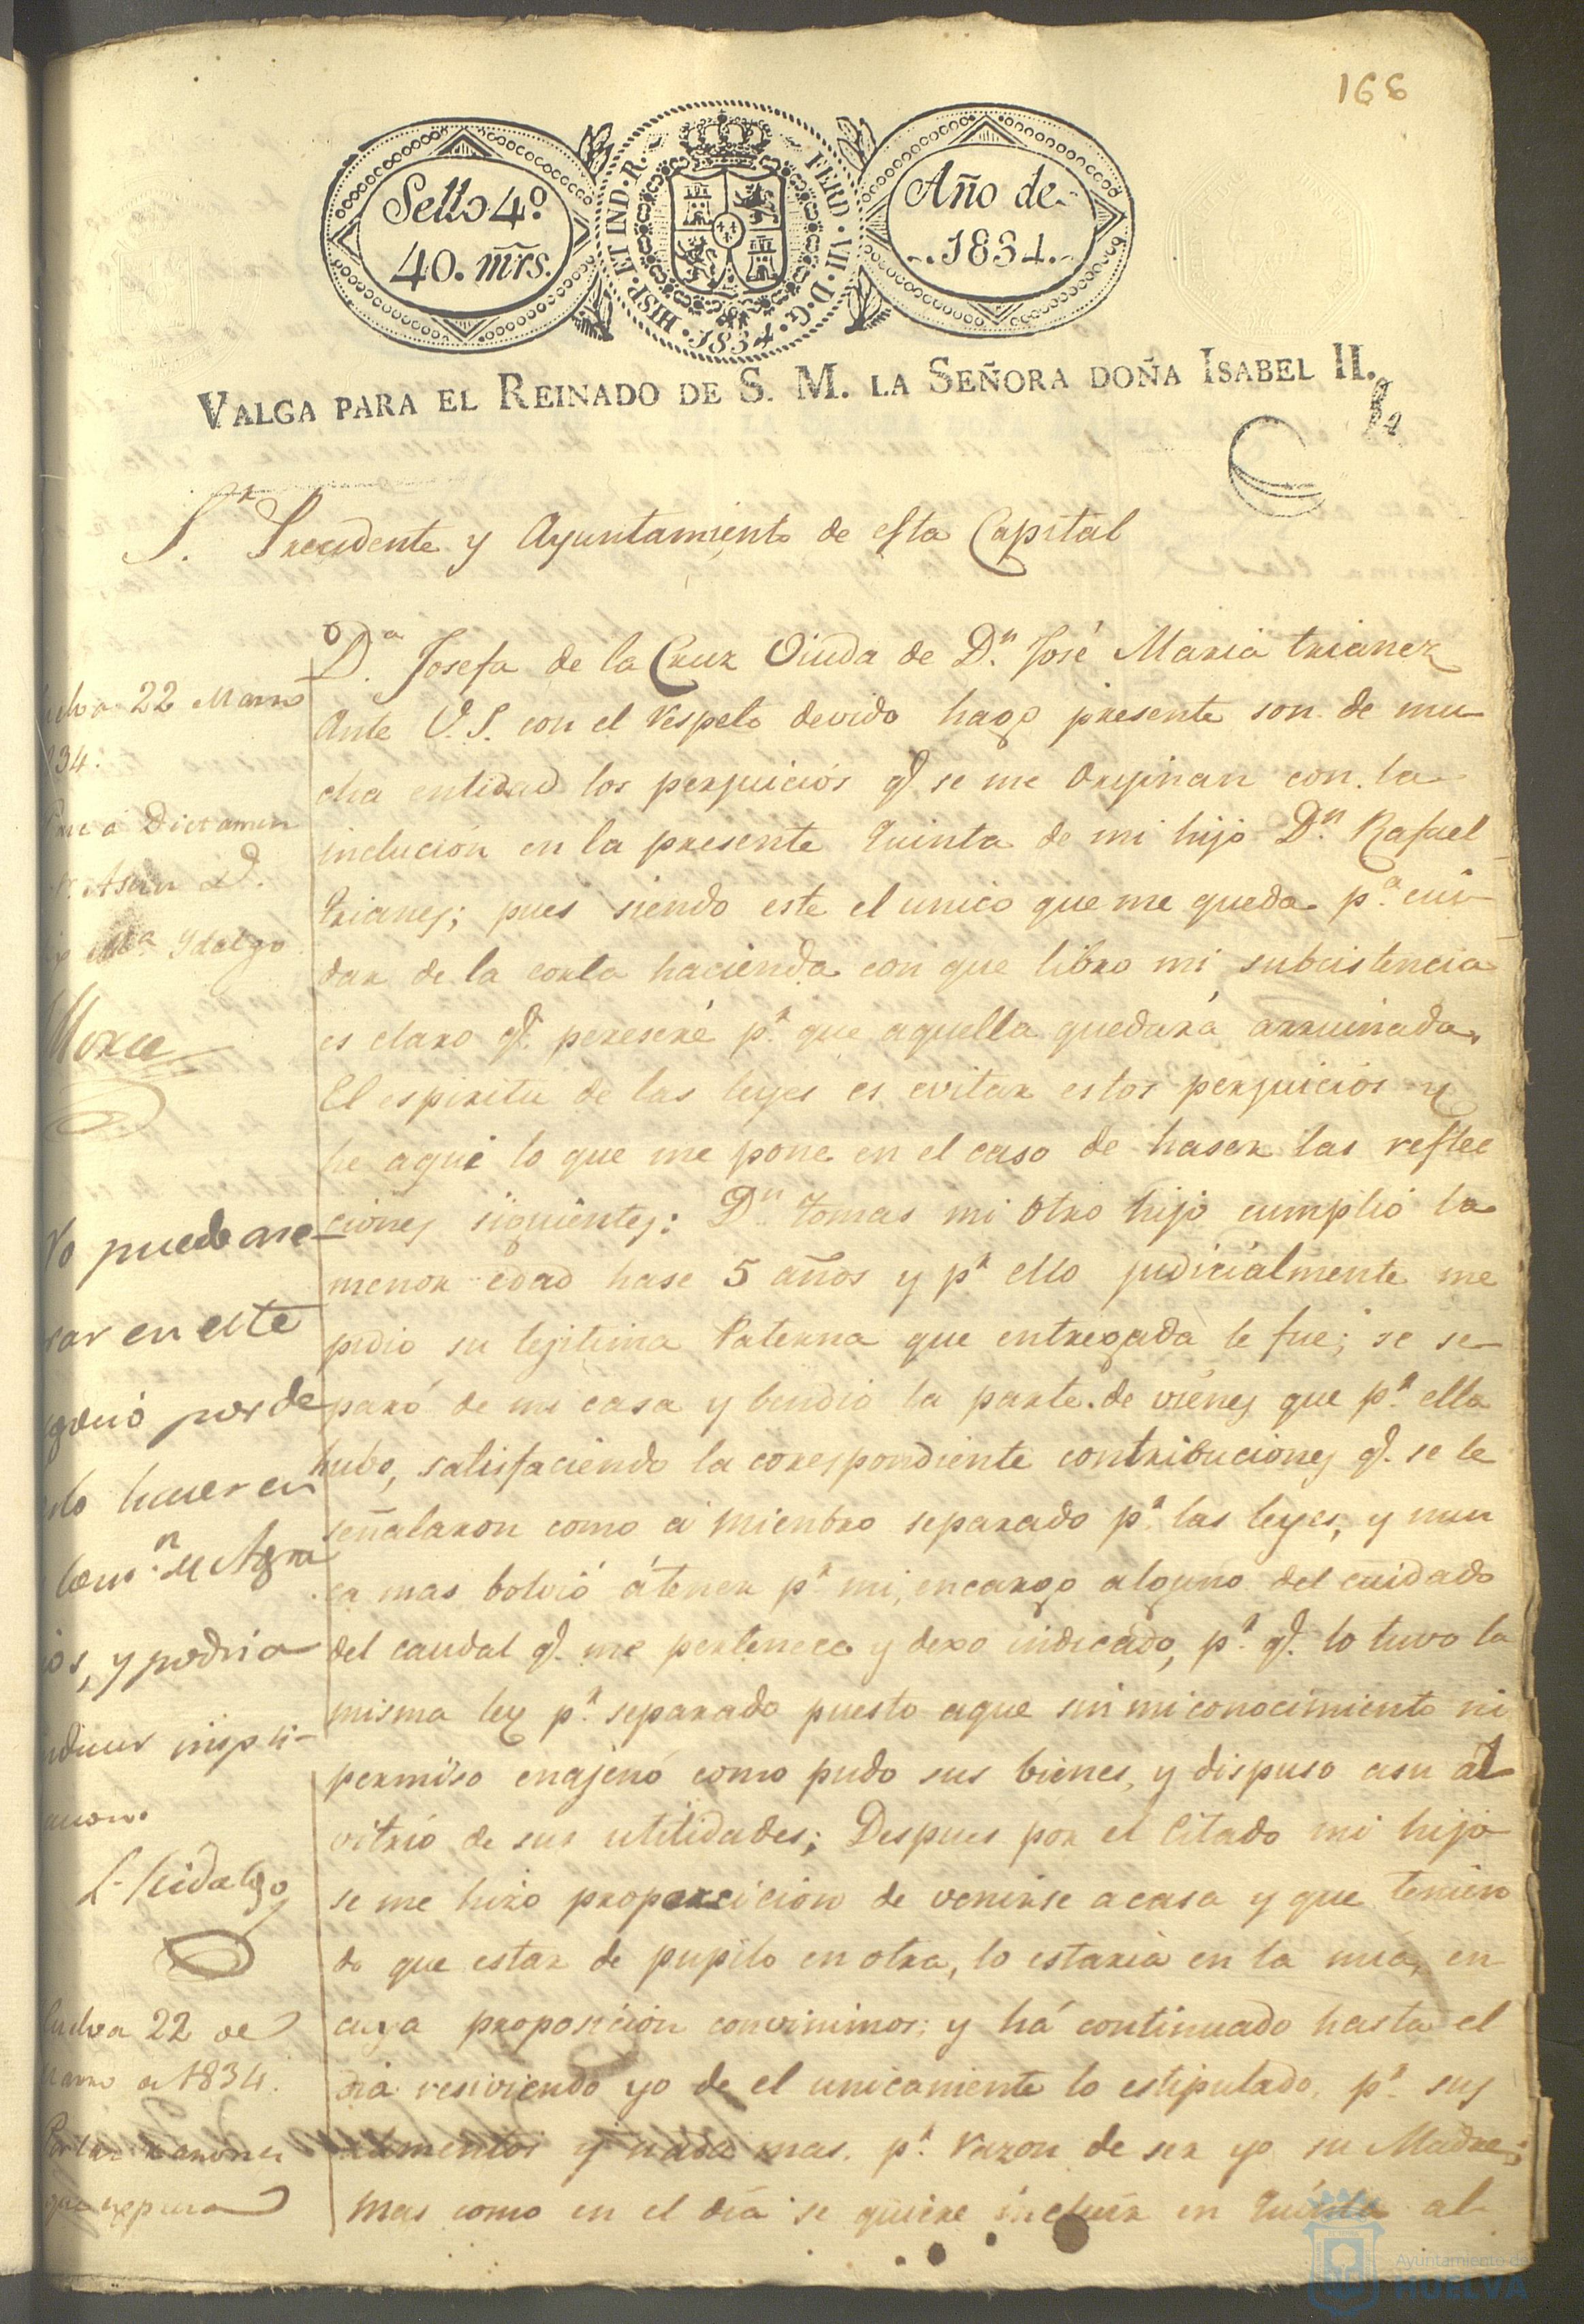 166
Sello 4º.
40. mrs.
HISP. ET IND. R.
FERD. VII. D. G.
1834
Año de
1834.
VALGA PARA EL REINADO DE S. M. LA SEÑORA DOÑA ISABEL II.
Sr. Precidente y Ayuntamiento de esta Capital
Dª. Josefa de la Cruz Viuda de Dn. José Maria trianez
Ante V.S. con el respeto devido hago presente son de mu
cha entidad los perjuicios q. se me Orijinan con la
inclucion en la presente Quinta de mi hijo Dn. Rafael
trianes; pues siendo este el unico que me queda pª. cui
dar de la corta hacienda con que libro mi subcistencia
es claro q. pereseré pr. que aquella quedará arruinada.
El espiritu de las leyes es evitar estos perjuicios y
he aqui lo que me pone en el caso de haser las reflec
ciones siguientes: Dn. tomas mi otro hijo cumplió la
menor edad hase 5 años y pr. ello judicialmente me
pidio su lejitima Paterna que entregada le fue; se se
paró de mi casa y bendio la parte de vienes que pr. ella
hubo, satisfaciendo la corespondiente contribuciones q. se le
señalaron como a mienbro separado pr. las leyes, y nun
ca mas bolvió á tener pr. mi, encargo alguno del cuidado
del caudal q. me pertenece y dexo indicado, pr. q. lo tuvo la
misma ley pr. separado puesto aque sin mi conocimiento ni
permiso enajenó como pudo sus bienes, y dispuso asu al
vitrio de sus utilidades; Despues por el Citado mi hijo
se me hizo propocicion de venirse a casa y que tenien
do que estar de pupilo en otra, lo estaria en la mia, en
cuya proposicion convinimos; y há continuado hasta el
dia resiviendo yo de el unicamente lo estipulado, pr. sus
alimentos y nada mas. pr. razon de ser yo su Madre;
mas como en el día se quiere incluir en Quinta al
22 Marzo
34.
Pase a Dictamen
Asesor D.
Mª Ydalgo
No puede me
rar en este
por de
lo hacer en
Agra
ios, y podria
L. Hidalgo
Huelva 22 de
Marzo de 1834.
Por las razones
que expresa
Ayuntamiento de
HUELVA